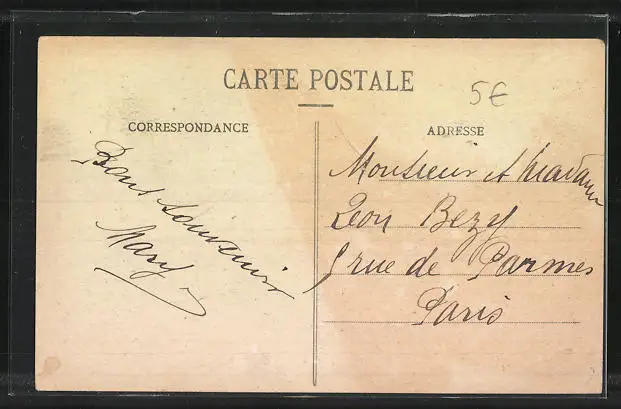 CARTE POSTALE
5€
CORRESPONDANCE
ADRESSE
Bons souvenirs
Mary
Monsieur et Madame
Leon Bezy
5 rue de Parmes
Paris